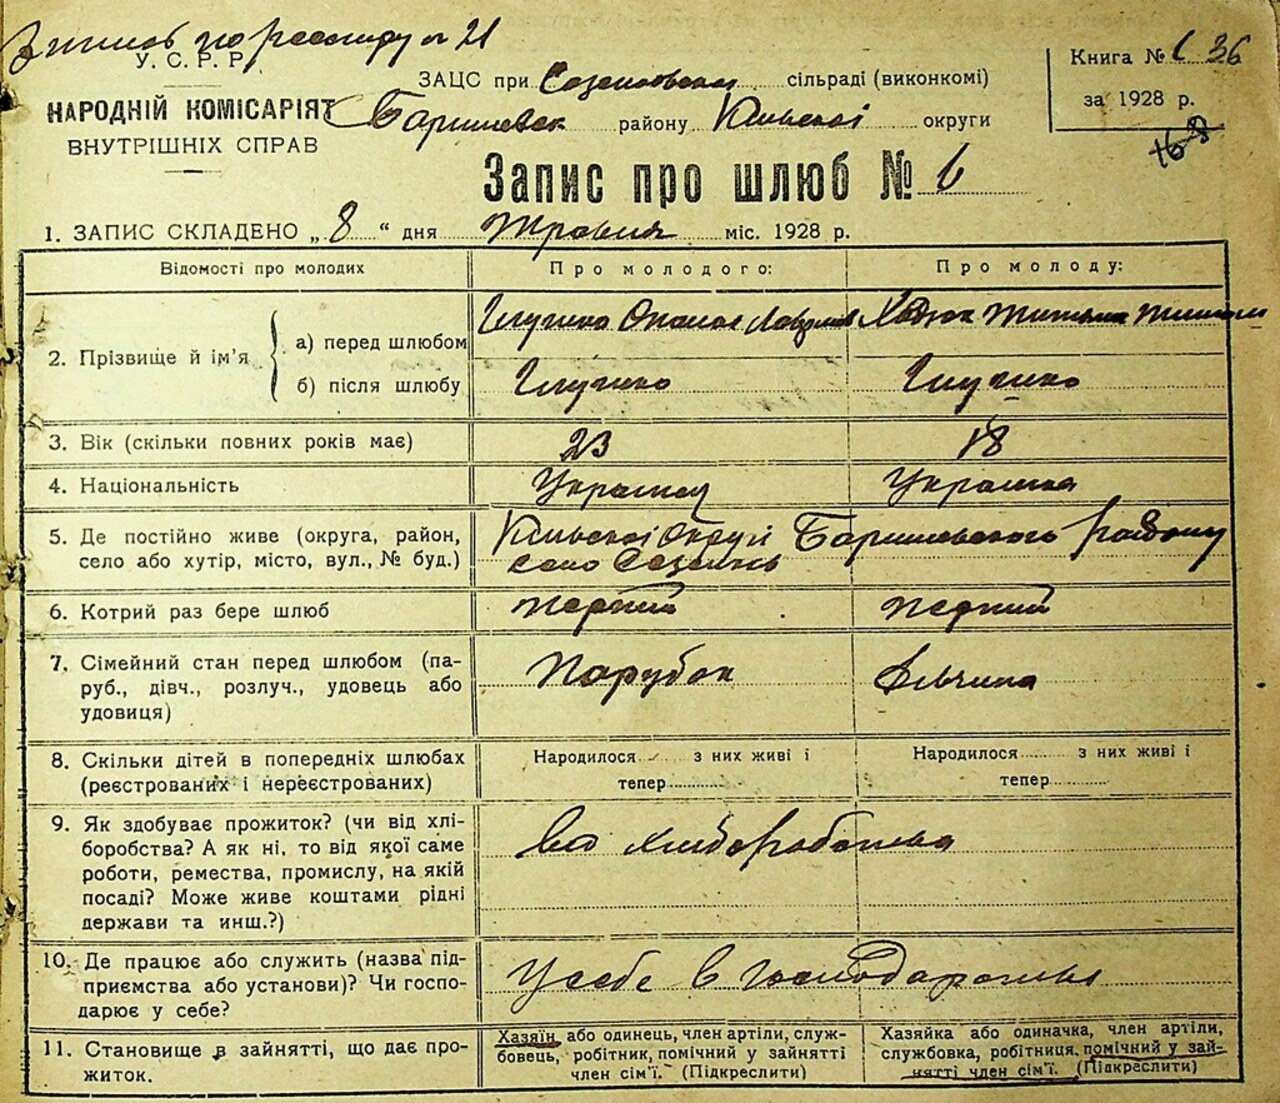 Запись по реестру № 21
У. С. Р. Р.
НАРОДНІЙ КОМІСАРІЯТ
ВНУТРІШНІХ СПРАВ
ЗАЦС при сільраді (виконкомі)
Баришевск району Київської округи
Книга № 6 36
за 1928 р.
168
Запис про шлюб № 6
1. ЗАПИС СКЛАДЕНО „ 8 “ дня Травня міс. 1928 р.
Відомості про молодих
Про молодого:
Про молоду:
2. Прізвище й ім'я
а) перед шлюбом
Глущенко Опанас
Титяна
б) після шлюбу
Глущенко
Глущенко
3. Вік (скільки повних років має)
23
18
4. Національність
Українец
Українка
5. Де постійно живе (округа, район,
село або хутір, місто, вул., № буд.)
Київської Округи Баришевського району
село
6. Котрий раз бере шлюб
Перший
Перший
7. Сімейний стан перед шлюбом (па-
руб., дівч., розлуч., удовець або
удовиця)
Парубок
Дівчина
8. Скільки дітей в попередніх шлюбах
(реєстрованих і нереєстрованих)
Народилося з них живі і
тепер
Народилося з них живі і
тепер
9. Як здобуває прожиток? (чи від хлі-
боробства? А як ні, то від якої саме
роботи, ремества, промислу, на якій
посаді? Може живе коштами рідні
держави та инш.?)
Від хліборобства
10. Де працює або служить (назва під-
приємства або установи)? Чи госпо-
дарює у себе?
У себе в господарстві
11. Становище в зайнятті, що дає про-
житок.
Хазяїн або одинець, член артіли, служ-
бовець, робітник, помічний у зайнятті
член сім'ї. (Підкреслити)
Хазяйка або одиначка, член артіли,
службовка, робітниця, помічний у зай-
нятті член сім'ї. (Підкреслити)